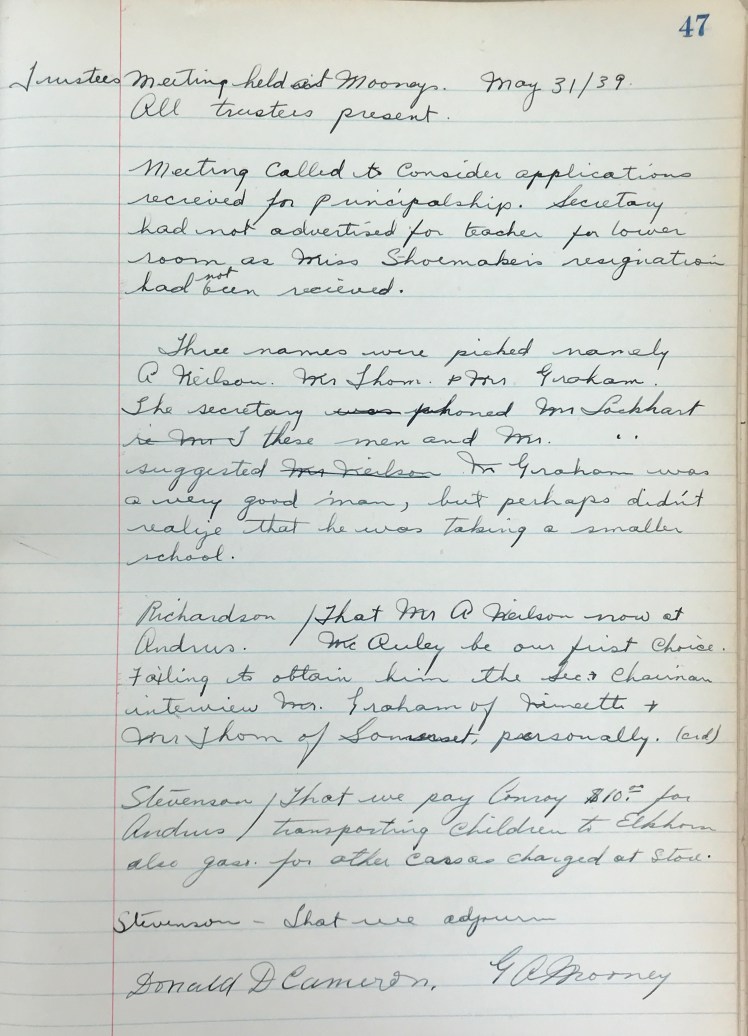 47
Trustees Meeting held at Mooneys. May 31/39.
All trustees present.
Meeting called to consider applications
recieved for principalship. Secretary
had not advertised for teacher for lower
room as Miss Shoemakers resignation
had not been recieved.
Three names were picked namely
A Neilson. Mr Thom. & Mr. Graham.
The secretary was phoned Mr Lockhart
re Mr T these men and Mr. "
suggested Mr Neilson Mr Graham was
a very good man, but perhaps didn't
realize that he was taking a smaller
school.
Richardson / That Mr A Neilson now at
Andrus. / McAuley be our first choice.
Failing to obtain him the Sec + Chairman
interview Mr. Graham of +
Mr Thom of Somerset, personally. (crd)
Stevenson / That we pay Conroy $10.00 for
Andrus / transporting children to Elkhorn
also gas. for other cars charged at store.
Stevenson - That we adjourn
Donald D Cameron. G A Mooney